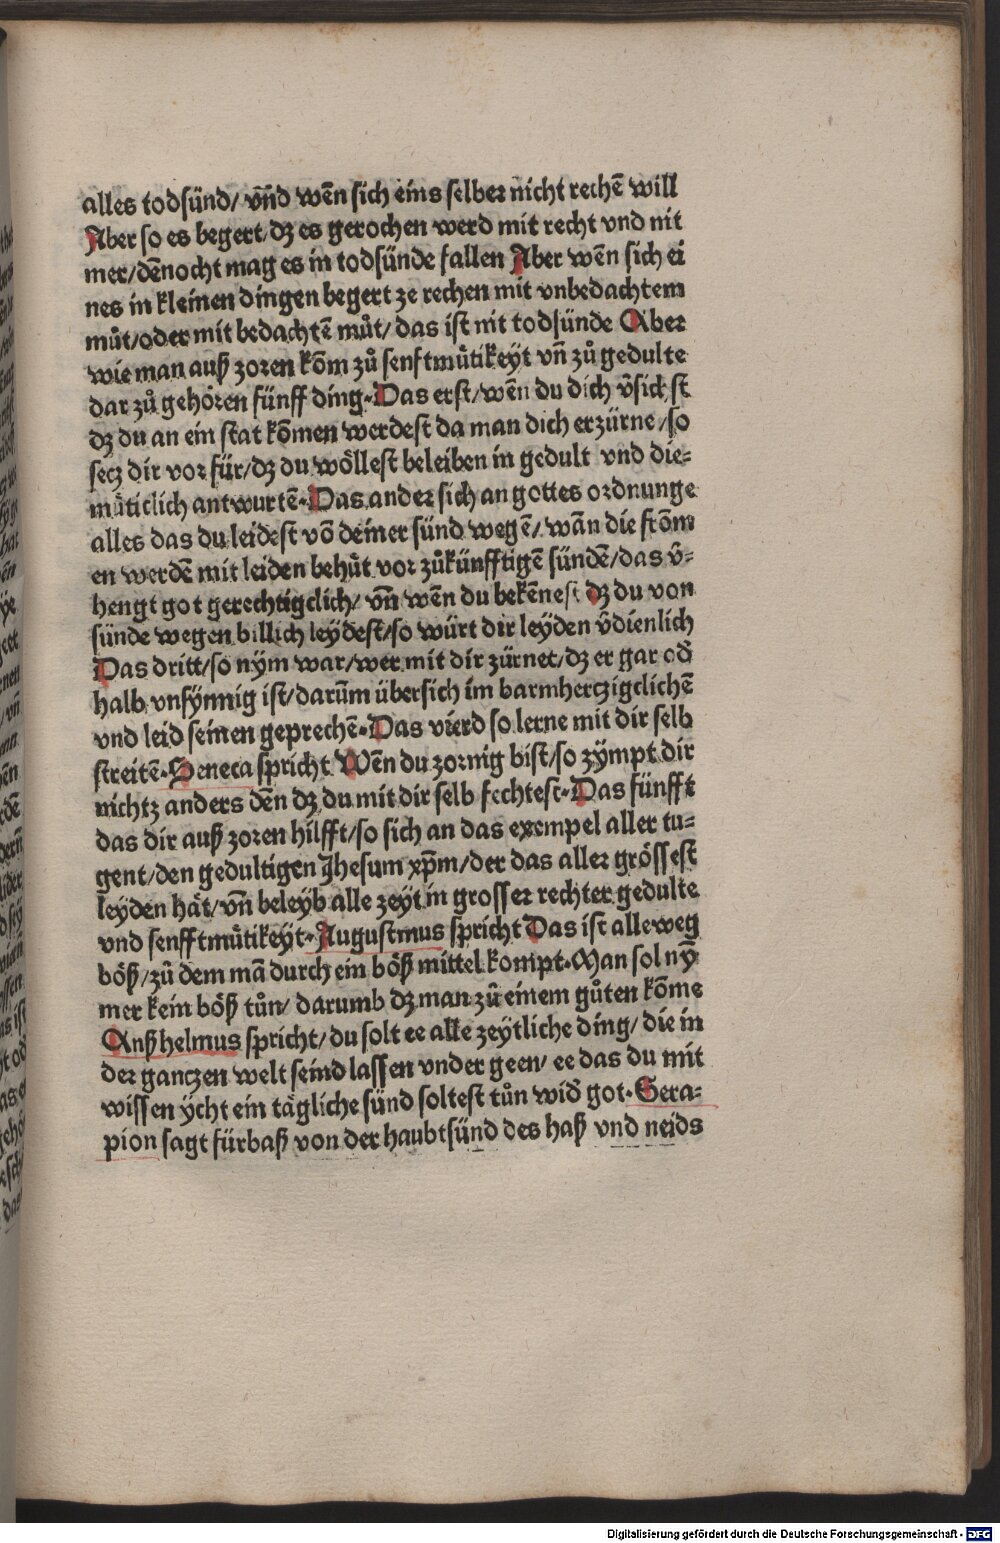 alles todsünd/ vn̄d wēn sich eins selber nicht rechē will
Aber so es begert/ dz es gerochen werd mit recht vnd nit
mer/ dēnocht mag es in todsünde fallen Aber wēn sich ei
nes in kleinen dingen begert ze rechen mit vnbedachtem
můt/ oder mit bedachtē můt/ das ist nit todsünde Aber
wie man auß zoren kōm zů senftmůtikeyt vn̄ zů gedulte
dar zů gehören fünff ding. Das erst/ wēn du dich v̄sichst
dz du an ein stat kōmen werdest da man dich erzürne/ so
secz dir vor für/ dz du wöllest beleiben in gedult vnd die=
můticlich antwurtē. Das ander sich an gottes ordnunge
alles das du leidest vō deiner sünd wegē/ wān die frōm
en werdē mit leiden behůt vor zůkünfftigē sündē/ das v̄=
hengt got gerechtigclich/ vn̄ wēn du bekēnest dz du von
sünde wegen billich leydest/ so würt dir leyden v̄dienlich
Das dritt/ so nym war/ wer mit dir zürnet/ dz er gar od̄
halb vnsynnig ist/ darūm übersich im barmherczigclichē
vnd leid seinen geprechē. Das vierd so lerne mit dir selb
streitē. Seneca spricht Wēn du zornig bist/ so zympt dir
nichtz anders dēn dz du mit dir selb fechtest. Das fünfft
das dir auß zoren hilfft/ so sich an das exempel aller tu=
gent/ den gedultigen Jhesum xp̄m/ der das aller grössest
leyden hät/ vn̄ beleyb alle zeyt in grosser rechter gedulte
vnd senfftmůtikeyt. Augustinus spricht Das ist alleweg
böß/ zů dem mā durch ein böß mittel kompt. Man sol nȳ
mer kein böß tůn/ darumb dz man zů einem gůten kōme
Anßhelmus spricht/ du solt ee alle zeytliche ding/ die in
der ganczen welt seind lassen vnder geen/ ee das du mit
wissen ycht ein tägliche sünd soltest tůn wid̄ got. Sera=
pion sagt fürbaß von der haubtsünd des haß vnd neids
Digitalisierung gefördert durch die Deutsche Forschungsgemeinschaft - DFG